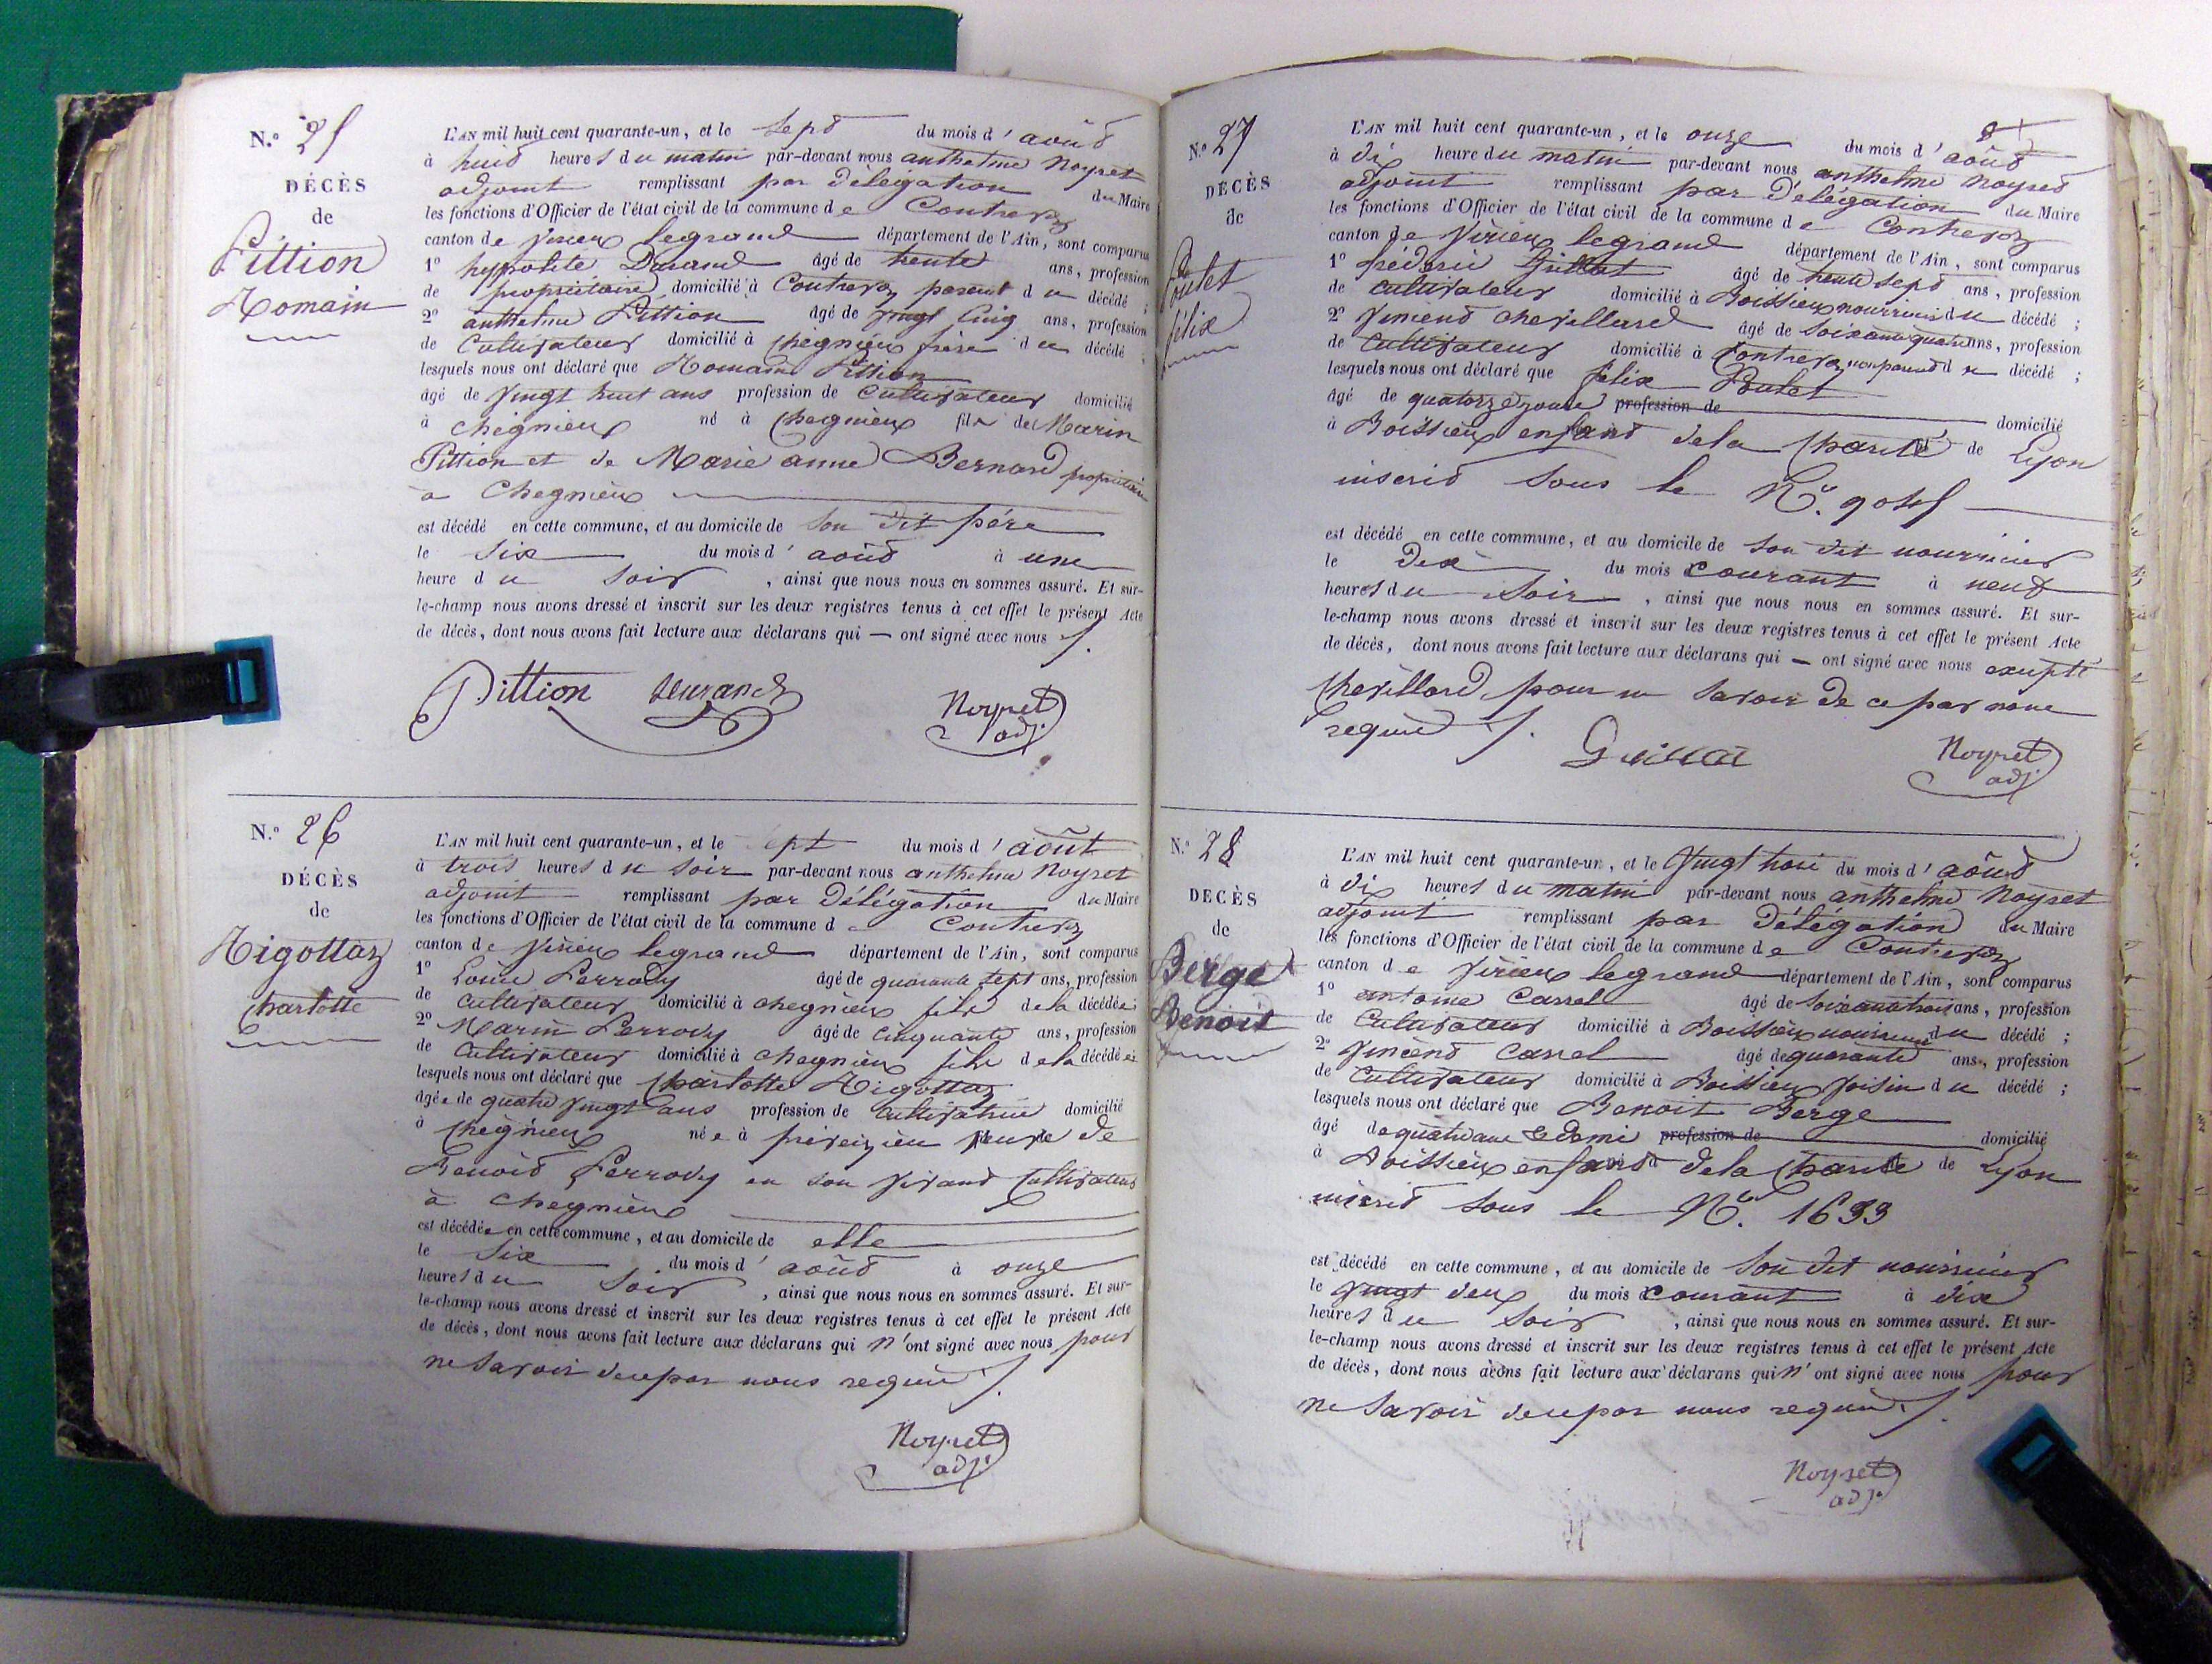 N.° 25
DÉCÈS
de
Pittion
Romain
L'AN mil huit cent quarante-un, et le sept du mois d'août
à huit heures du matin par-devant nous anthelme Noyret
adjoint remplissant par Délégation du Maire
les fonctions d'Officier de l'état civil de la commune de Contrevoz
canton de Virieu legrand département de l'Ain, sont comparus
1° hyppolite Durand âgé de trente ans, profession
de propriétaire domicilié à Contrevoz parent du décédé ;
2° anthelme Pittion âgé de vingt cinq ans, profession
de Cultivateur domicilié à Chegnieux frère du décédé ;
lesquels nous ont déclaré que Romain Pittion
âgé de vingt huit ans profession de Cultivateur domicilié
à Chegnieux né à Chegnieux fils de Marin
Pittion et de Marie anne Bernard propriétaire
à Chegnieux
est décédé en cette commune, et au domicile de son dit père
le six du mois d'août à une
heure du soir, ainsi que nous nous en sommes assuré. Et sur-
le-champ nous avons dressé et inscrit sur les deux registres tenus à cet effet le présent Acte
de décès, dont nous avons fait lecture aux déclarans qui — ont signé avec nous /.
Pittion Durand Noyret
adj.
N.° 26
DÉCÈS
de
Rigottaz
Charlotte
L'AN mil huit cent quarante-un, et le sept du mois d'août
à trois heures du soir par-devant nous anthelme Noyret
adjoint remplissant par Délégation du Maire
les fonctions d'Officier de l'état civil de la commune de Contrevoz
canton de Virieu legrand département de l'Ain, sont comparus
1° Louis Perrody âgé de quarante sept ans, profession
de Cultivateur domicilié à chegnieux fils de la décédée ;
2° Marin Perrody âgé de cinquante ans, profession
de Cultivateur domicilié à chegnieux fils de la décédée
lesquels nous ont déclaré que Charlotte Rigottaz
âgée de quatre vingt ans profession de Cultivatrice domicilié
à Chegnieux née à veuve de
Benoit Perrody en son vivant Cultivateur
à Chegnieux
est décédée en cette commune, et au domicile de elle
le six du mois d'août à onze
heures du soir, ainsi que nous nous en sommes assuré. Et sur-
le-champ nous avons dressé et inscrit sur les deux registres tenus à cet effet le présent Acte
de décès, dont nous avons fait lecture aux déclarans qui n'ont signé avec nous pour
ne savoir de ce par nous requis /.
Noyret
adj.
N.° 27
DÉCÈS
de
Poulet
félix
L'AN mil huit cent quarante-un, et le onze du mois d'août
à dix heure du matin par-devant nous anthelme Noyret
adjoint remplissant par Délégation du Maire
les fonctions d'Officier de l'état civil de la commune de Contrevoz
canton de Virieu legrand département de l'Ain, sont comparus
1° frédéric Guillat âgé de trente sept ans, profession
de cultivateur domicilié à Boissieux nourricier du décédé ;
2° Vincent Chevillard âgé de soixante quatre ans, profession
de Cultivateur domicilié à Contrevoz non parent du décédé ;
lesquels nous ont déclaré que félix Poulet
âgé de quatorze jours profession de domicilié
à Boissieux enfant de la Charité de Lyon
inscrit sous le N.°
est décédé en cette commune, et au domicile de son dit nourricier
le dix du mois courant à neuf
heures du soir, ainsi que nous nous en sommes assuré. Et sur-
le-champ nous avons dressé et inscrit sur les deux registres tenus à cet effet le présent Acte
de décès, dont nous avons fait lecture aux déclarans qui — ont signé avec nous excepté
Chevillard pour ne savoir de ce par nous
requis /.
Guillat Noyret
adj.
N.° 28
DÉCÈS
de
Berge
Benoit
L'AN mil huit cent quarante-un, et le vingt trois du mois d'août
à dix heures du matin par-devant nous anthelme Noyret
adjoint remplissant par Délégation du Maire
les fonctions d'Officier de l'état civil de la commune de Contrevoz
canton de Virieu legrand département de l'Ain, sont comparus
1° antoine Carrel âgé de soixante trois ans, profession
de Cultivateur domicilié à Boissieux nourricier du décédé ;
2° Vincent Carrel âgé de quarante ans, profession
de Cultivateur domicilié à Boissieux voisin du décédé ;
lesquels nous ont déclaré que Benoit Berge
âgé de quatre ans & demi profession de domicilié
à Boissieux enfant de la Charité de Lyon
inscrit sous le N.° 1633
est décédé en cette commune, et au domicile de son dit nourricier
le vingt deux du mois courant à dix
heures du soir, ainsi que nous nous en sommes assuré. Et sur-
le-champ nous avons dressé et inscrit sur les deux registres tenus à cet effet le présent Acte
de décès, dont nous avons fait lecture aux déclarans qui n'ont signé avec nous pour
ne savoir de ce par nous requis /.
Noyret
adj.